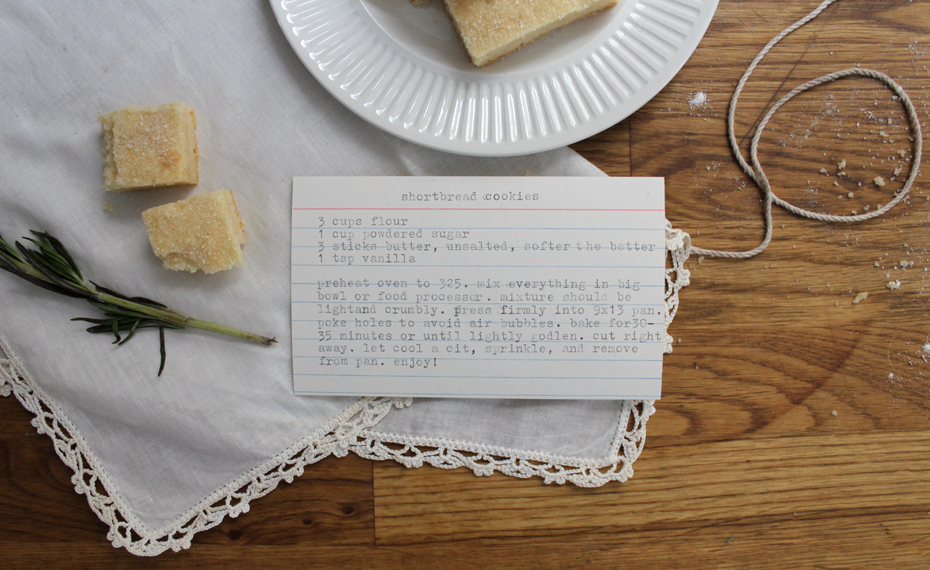 shortbread cookies
3 cups flour
1 cup powdered sugar
3 sticks butter, unsalted, softer the batter
1 tsp vanilla
preheat oven to 325. mix everything in big
bowl or food processor. mixture should be
lightand crumbly. press firmly into 9x13 pan.
poke holes to avoid air bubbles. bake for30-
35 minutes or until lightly godlen. cut right
away. let cool a cit, sprinkle, and remove
from pan. enjoy!